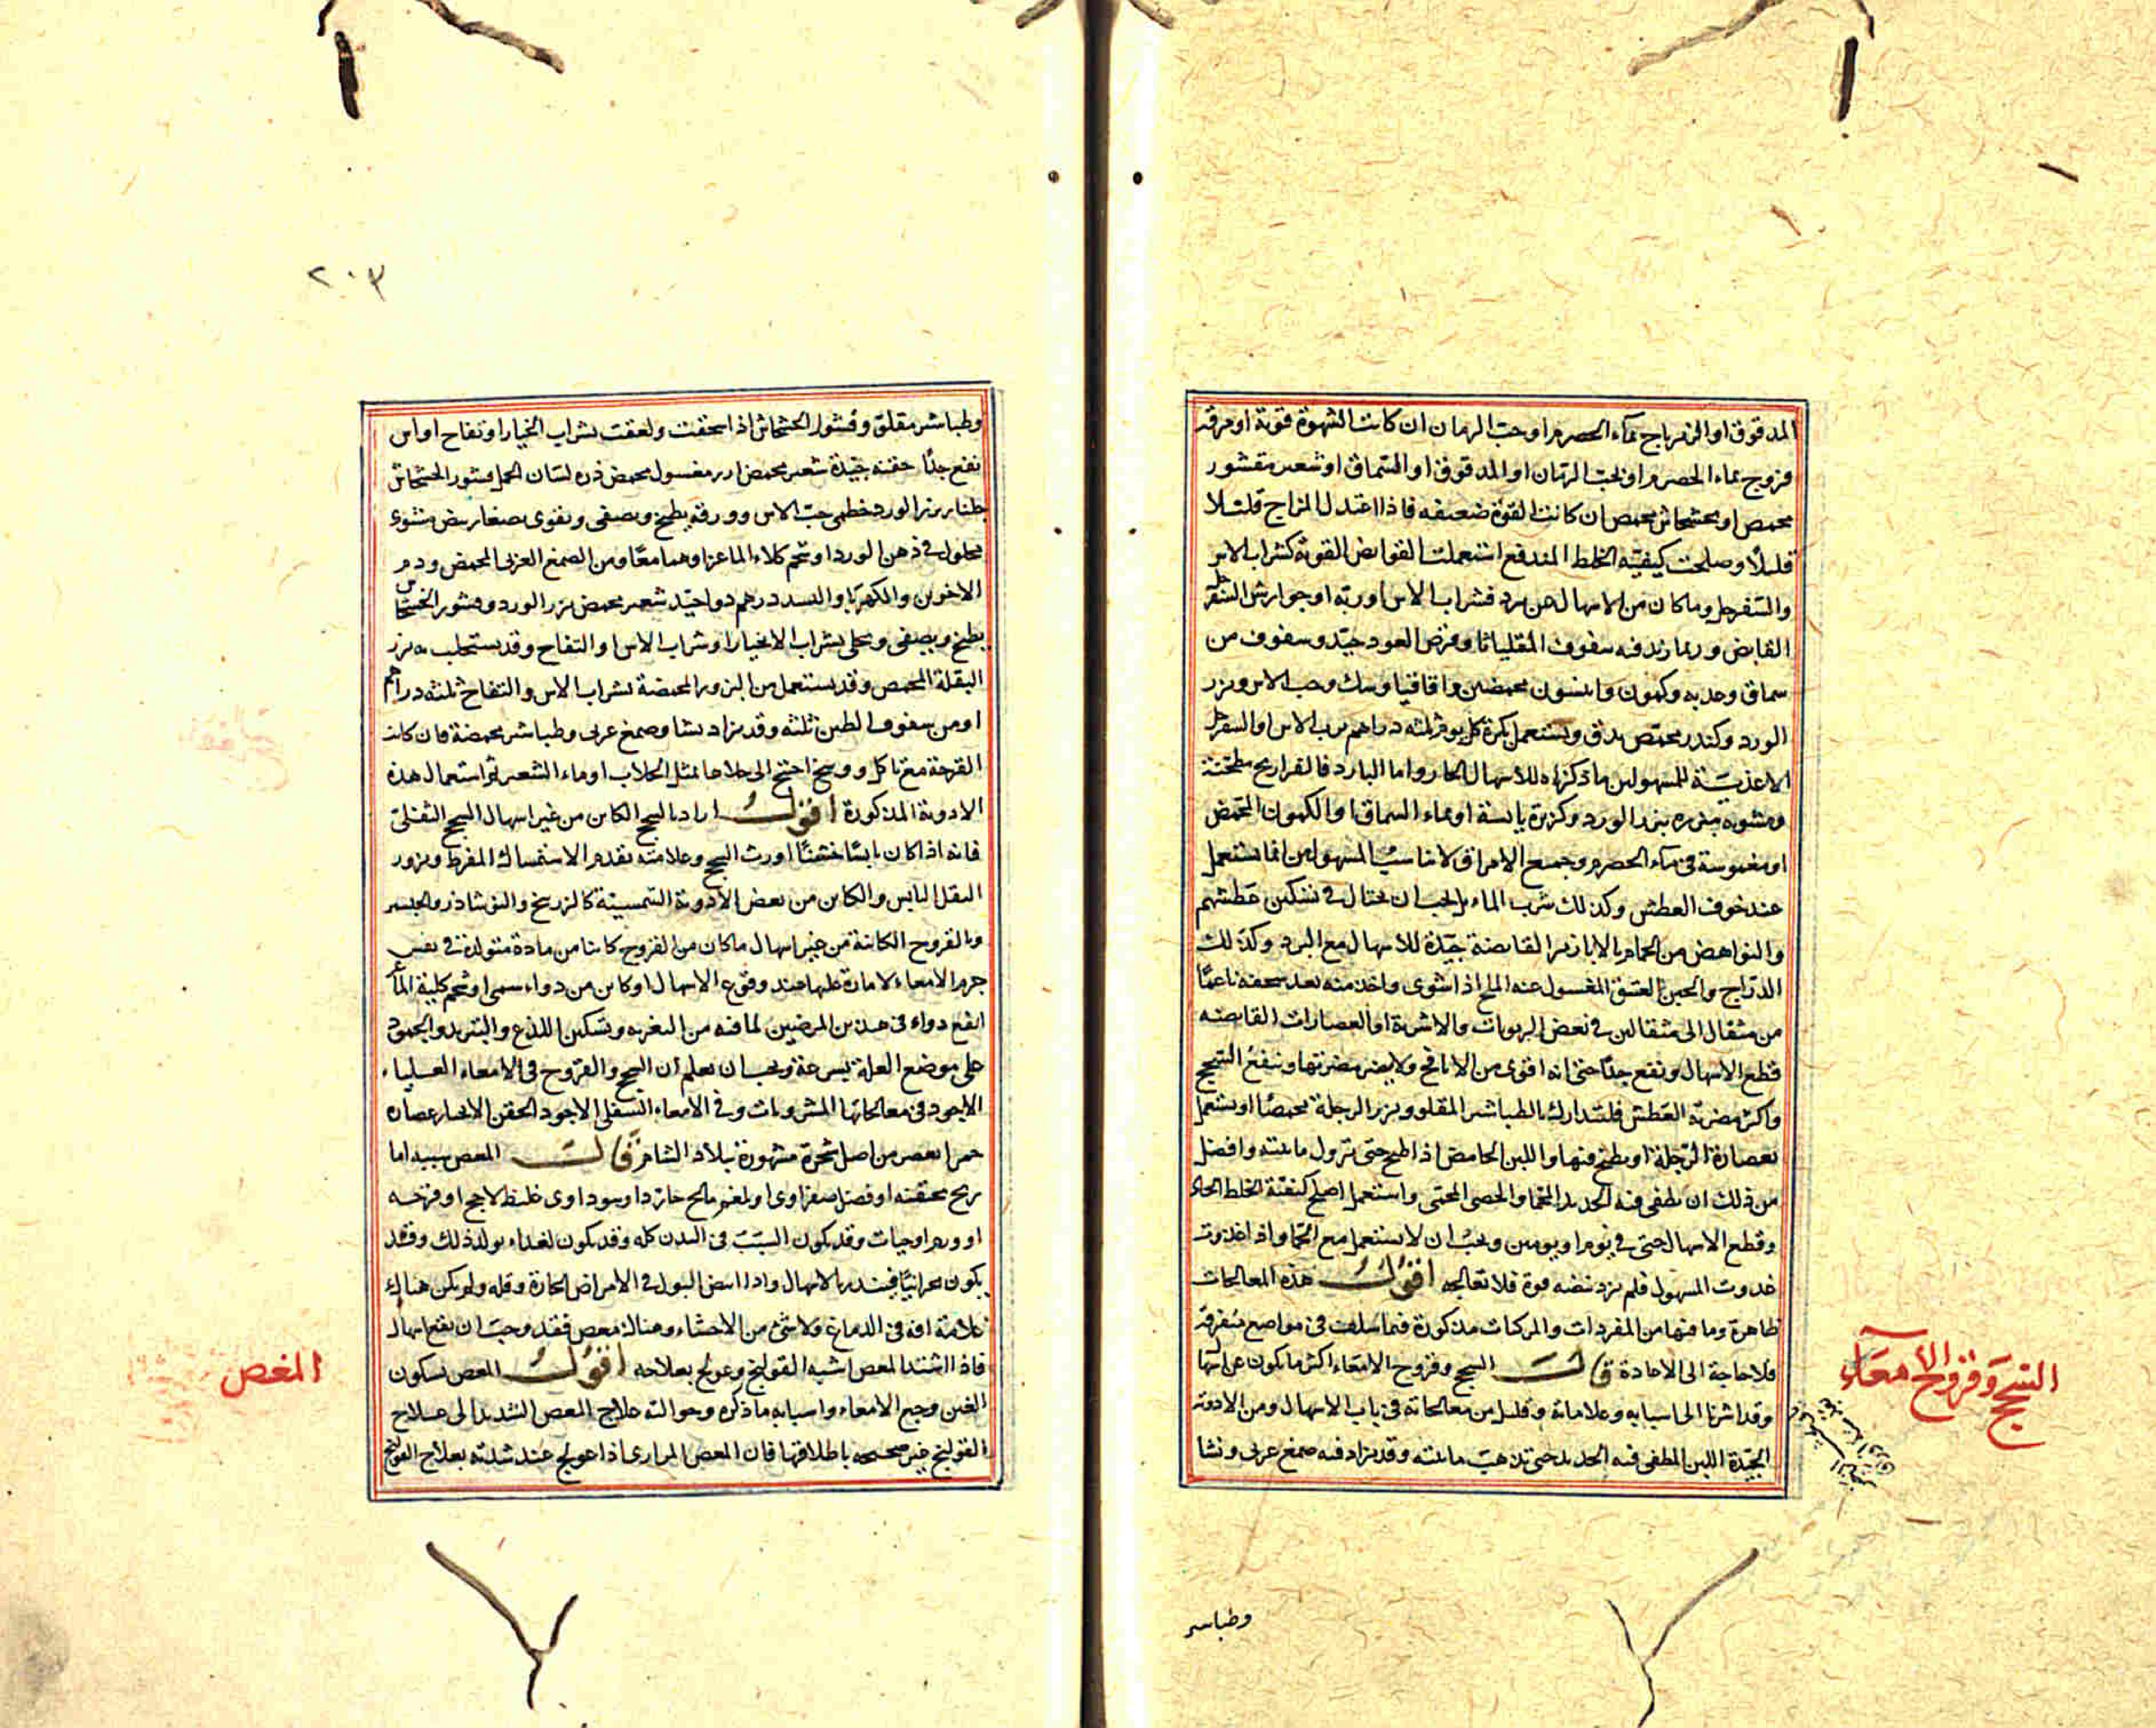 المدقوق او الزيرباج بماء الحصرم او حب الرمان ان كانت الشهوة قوية او مرقة
فروج بماء الحصرم او بحب الرمان او المدقوق او السماق او شعير مقشور
محمص او بخشخاش محمص ان كانت القوة ضعيفه فاذا اعتدل المزاج قليلا
قليلا وصلحت كيفية الخلط المندفع استعملت القوابض القوية كشراب الاس
والسفرجل وما كان من الاسهال عن برد فشراب الاس او ربه او جوارش السفرجل
القابض وربما زيد فيه سفوف المقلياثا وقرص العود جيد وسفوف من
سماق وحديه وكمون وانيسون محمصين واقاقيا وسك وحب الاس وبزر
الورد وكندر محمص يدق ويستعمل بكرة كل يوم ثلثه دراهم برب الاس او السفرجل
الاغذية للمسهولين ما ذكرناه للاسهال الحار واما البارد فالفراريج مطجنة
ومشويه مبزره ببزر الورد وكزبرة يابسة او بماء السماق او الكمون المحمص
او مغموسة في ماء الحصرم وجميع الامراق لا تناسب المسهولين انما تستعمل
عند خوف العطش وكذلك شرب الماء بل يجب ان يحتال في تسكين عطشهم
والنواهض من الحمام بالابازير القابضة جيدة للاسهال مع البرد وكذلك
الدراج والجبن العتيق المغسول عنه الملح اذا شوى واخذ منه بعد سحقه ناعما
من مثقال الى مثقالين في بعض الربوبات والاشربة او العصارات القابضه
قطع الاسهال ونفع جدا حتى انه اقوى من الانافح ولا يضر مضرتها وينفع السحج
واكثر مضرته العطش فليتدارك بالطباشير المقلو وبزر الرجلة محمصا او يستعمل
بعصارة الرجلة او يطبخ فيها واللبن الحامض اذا طبخ حتى تزول مائيته وافضل
من ذلك ان يطفى فيه الحديد المحما والحصى المحمى واستعمل اصلح كيفية الخلط الحاد
وقطع الاسهال حتى في يوم او يومين ويجب ان لا يستعمل مع الحما واذا غذوت
غدوت المسهول فلم يزد نبضه قوة فلا تعالجه اقول هذه المعالجات
ظاهرة وما فيها من المفردات والمركبات مذكورة فيما سلف في مواضع متفرقة
فلا حاجة الى الاعادة قال السحج وقروح الامعاء اكثر ما يكون عن اسهال
وقد اشرنا الى اسبابه وعلاماته وقليل من معالجاته في باب الاسهال ومن الادوية
الجيدة اللبن المطفى فيه الحديد حتى تذهب مائيته وقد يزاد فيه صمغ عربى ونشا
السحج وقروح الامعاء
وطباسر
٢٠٣
وطباشير مقلو وقشور الخشخاش اذا سحقت ولعقت بشراب الخيار او تفاح او اس
نفع جدا حقنه جيدة شعير محمص ارز مغسول محمص ذره لسان الحمل قشور الخشخاش
جلنار بزر الورد خطمى حب الاس وورقه يطبخ ويصفى ويقوى بصفار بيض مشوى
محلول في دهن الورد او شحم كلاء الماعز او هما معا ومن الصمغ العربى المحمص ودم
الاخوين والكهربا والبسد درهم دوا جيد شعير محمص بزر الورد وقشور الخشخاش
يطبخ ويصفى ويحلى بشراب الانجبار او شراب الاس او التفاح وقد يستحلب به بزر
البقلة المحمص وقد يستعمل من البزور المحمصة بشراب الاس والتفاح ثلثه دراهم
او من سفوف الطين ثلثه وقد يزاد نشا وصمغ عربى وطباشير محمصة فان كانت
القرحة مع تاكل ووسخ احتيج الى جلاءها بمثل الجلاب او ماء الشعير ثم استعمال هذه
الادوية المذكورة اقول اراد بالسحج الكاين من غير اسهال السحج الثفلى
فانه اذا كان يابسا خشنا اورث السحج وعلامته تقدم الاستمساك المفرط وبروز
الثفل اليابس والكاين من بعض الادوية السمية كالزرنيخ والنوشاذر والجبسين
وبالقروح الكائنة من غير اسهال ما كان من القروح كاينا من مادة متولدة في نفس
جرم الامعاء لامارة عليها عند وقوع الاسهال او كاين من دواء سمى او شحم كلية الماعز
انفع دواء في هذين المرضين لما فيه من التغريه وتسكين اللذع والتبريد والجمود
على موضع العلة بسرعة ويجب ان يعلم ان السحج والقروح في الامعاء العلياء
الاجود في معالجاتها المشروبات وفي الامعاء السفلى الاجود الحقن الانجبار عصاره
حمرا تعصر من اصل شجرة مشهورة ببلاد الشام قال المغص سببه اما
ريح محتقنه او فضل صفراوى او بلغم مالح حار ردا او سوداوى غليظ لاحج او قرحه
او ورم او حيات وقد يكون السبب في البدن كله وقد يكون لغذاء يولد ذلك وقد
يكون بحرانيا فينذر بالاسهال واذا ابيض البول في الامراض الحارة وقله ولم يكن هناك
علامة افة في الدماغ ولا شئ من الاحشاء وهناك مغص فقد وجب ان يقع اسهال
فاذا اشتد المغص اشبه القولنج وعولج بعلاجه اقول المغص بسكون
الغين وجع الامعاء واسبابه ما ذكره وحوالته علاج المغص الشديد الى علاج
القولنج غير صحيحه باطلاقها فان المغص المرارى اذا عولج عند شدته بعلاج القولنج
المغص